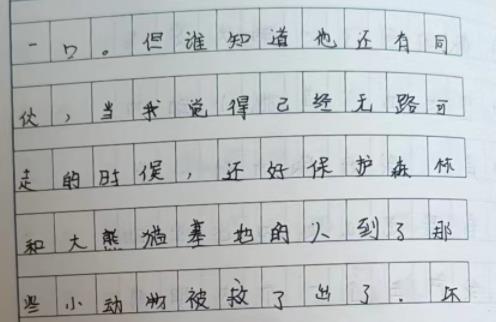 一口。但谁知道他还有同
伙，当我觉得已经无路可
走的时候，还好保护森林
和大熊猫基地的人到了那
些小动物被救了出了．坏